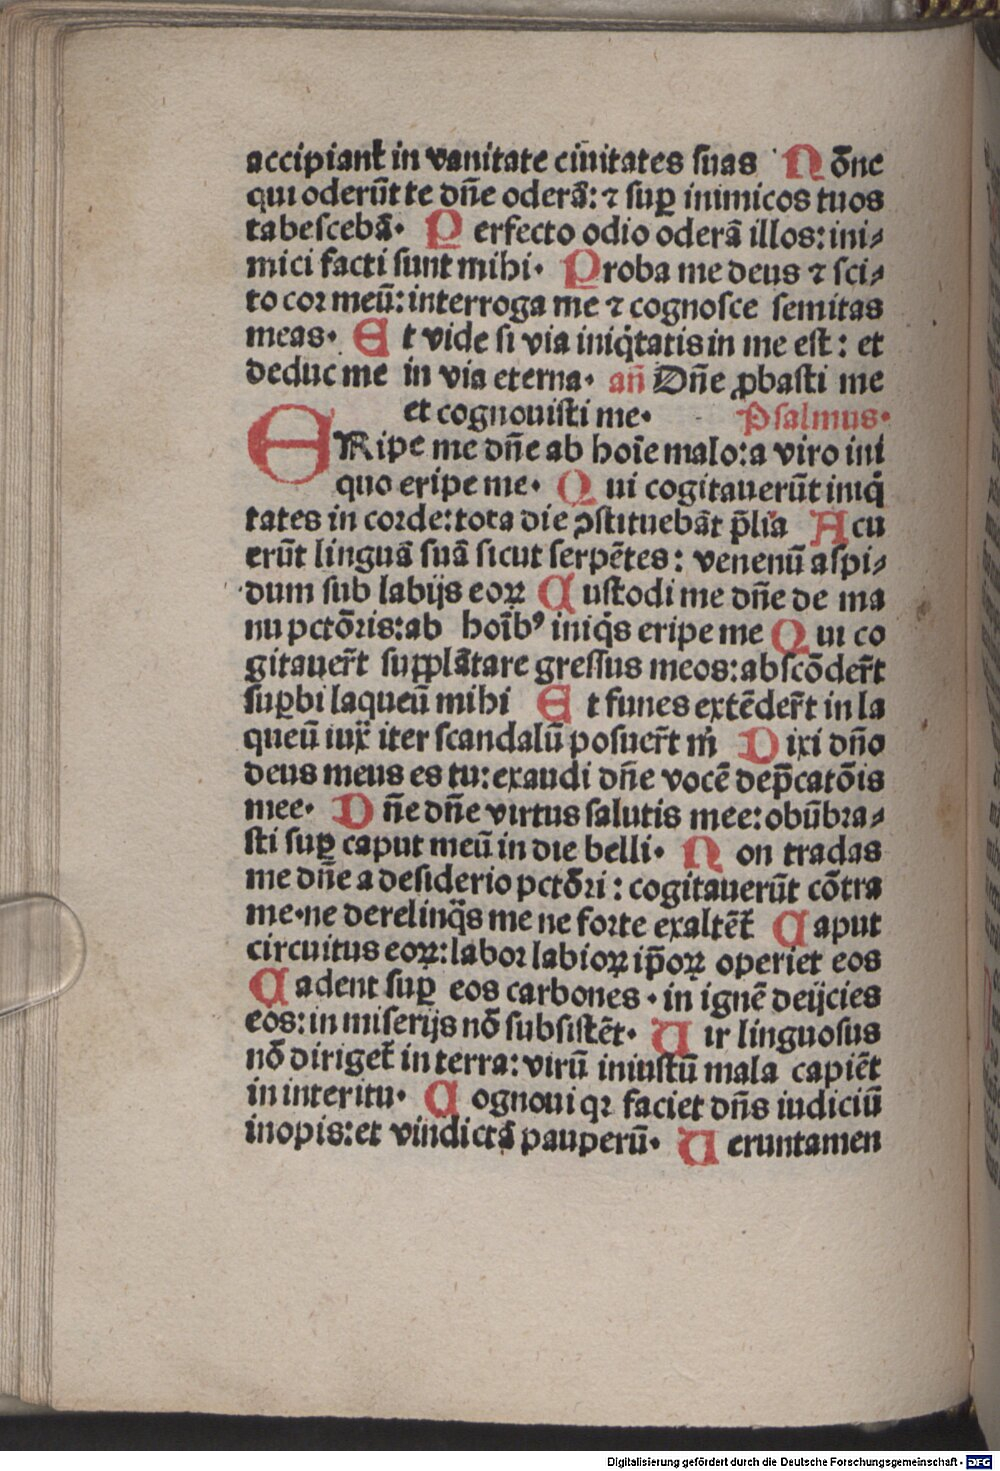 accipiant᷑ in vanitate ciuitates ſuas Nōne
qui oderūt te dn̄e oderā: ⁊ ſuꝑ inimicos tuos
tabeſcebā· Perfecto odio oderā illos: ini⸗
mici facti ſunt mihi· Proba me deus ⁊ ſci⸗
to coꝛ meū: interroga me ⁊ cognoſce ſemitas
meas· Et vide ſi via iniq̇tatis in me eſt: et
deduc me in via eterna· an̄ Dn̄e ꝓbaſti me
et cognouiſti me· Pſalmus·
ERipe me dn̄e ab hoīe malo: a viro ini
quo eripe me· Qui cogitauerūt iniq̇
tates in coꝛde: tota die ꝯſtituebāt p̄lia Acu
erūt linguā ſuā ſicut ſerpētes: venenū aſpi⸗
dum ſub labijs eoꝝ Cuſtodi me dn̄e de ma
nu pctōꝛis: ab hoīb⁹ iniq̇s eripe me Qui co
gitauer̄t ſuꝑplātare greſſus meos: abſcōder̄t
ſuꝑbi laqueū mihi Et funes extēder̄t in la
queū iux̄ iter ſcandalū poſuer̄t ṁ Dixi dn̄o
deus meus es tu: exaudi dn̄e vocē dep̄catōis
mee· Dn̄e dn̄e virtus ſalutis mee: obūbꝛa⸗
ſti ſuꝑ caput meū in die belli· Non tradas
me dn̄e a deſiderio pctōꝛi: cogitauerūt cōtra
me·ne derelinq̇s me ne foꝛte exaltēt᷑ Caput
circuitus eoꝝ: laboꝛ labioꝝ ip̄oꝝ operiet eos
Cadent ſuꝑ eos carbones · in ignē deijcies
eos: in miſerijs nō ſubſiſtēt· Vir linguoſus
nō diriget᷑ in terra: virū iniuſtū mala capiēt
in interitu· Cognoui qꝛ faciet dn̄s iudiciū
inopis: et vindictā pauperū· Veruntamen
Digitalisierung gefördert durch die Deutsche Forschungsgemeinschaft · DFG